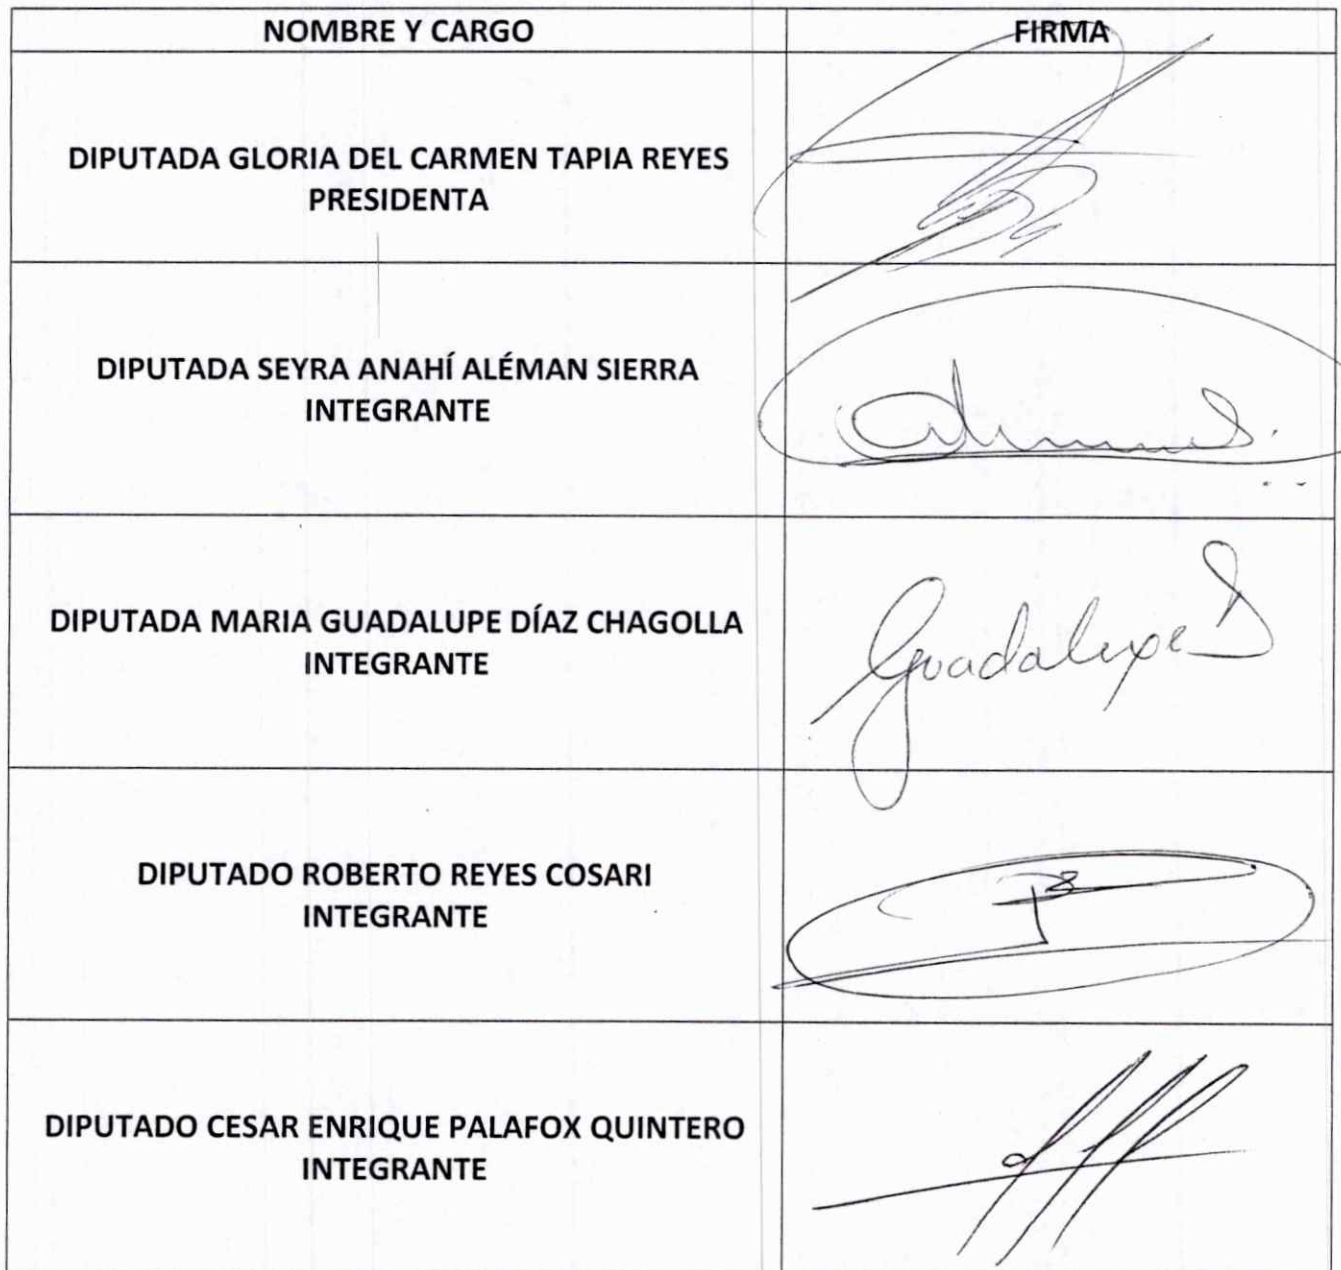 NOMBRE Y CARGO
FIRMA
DIPUTADA GLORIA DEL CARMEN TAPIA REYES
PRESIDENTA
DIPUTADA SEYRA ANAHÍ ALÉMAN SIERRA
INTEGRANTE
DIPUTADA MARIA GUADALUPE DÍAZ CHAGOLLA
INTEGRANTE
Guadalupe D
DIPUTADO ROBERTO REYES COSARI
INTEGRANTE
DIPUTADO CESAR ENRIQUE PALAFOX QUINTERO
INTEGRANTE